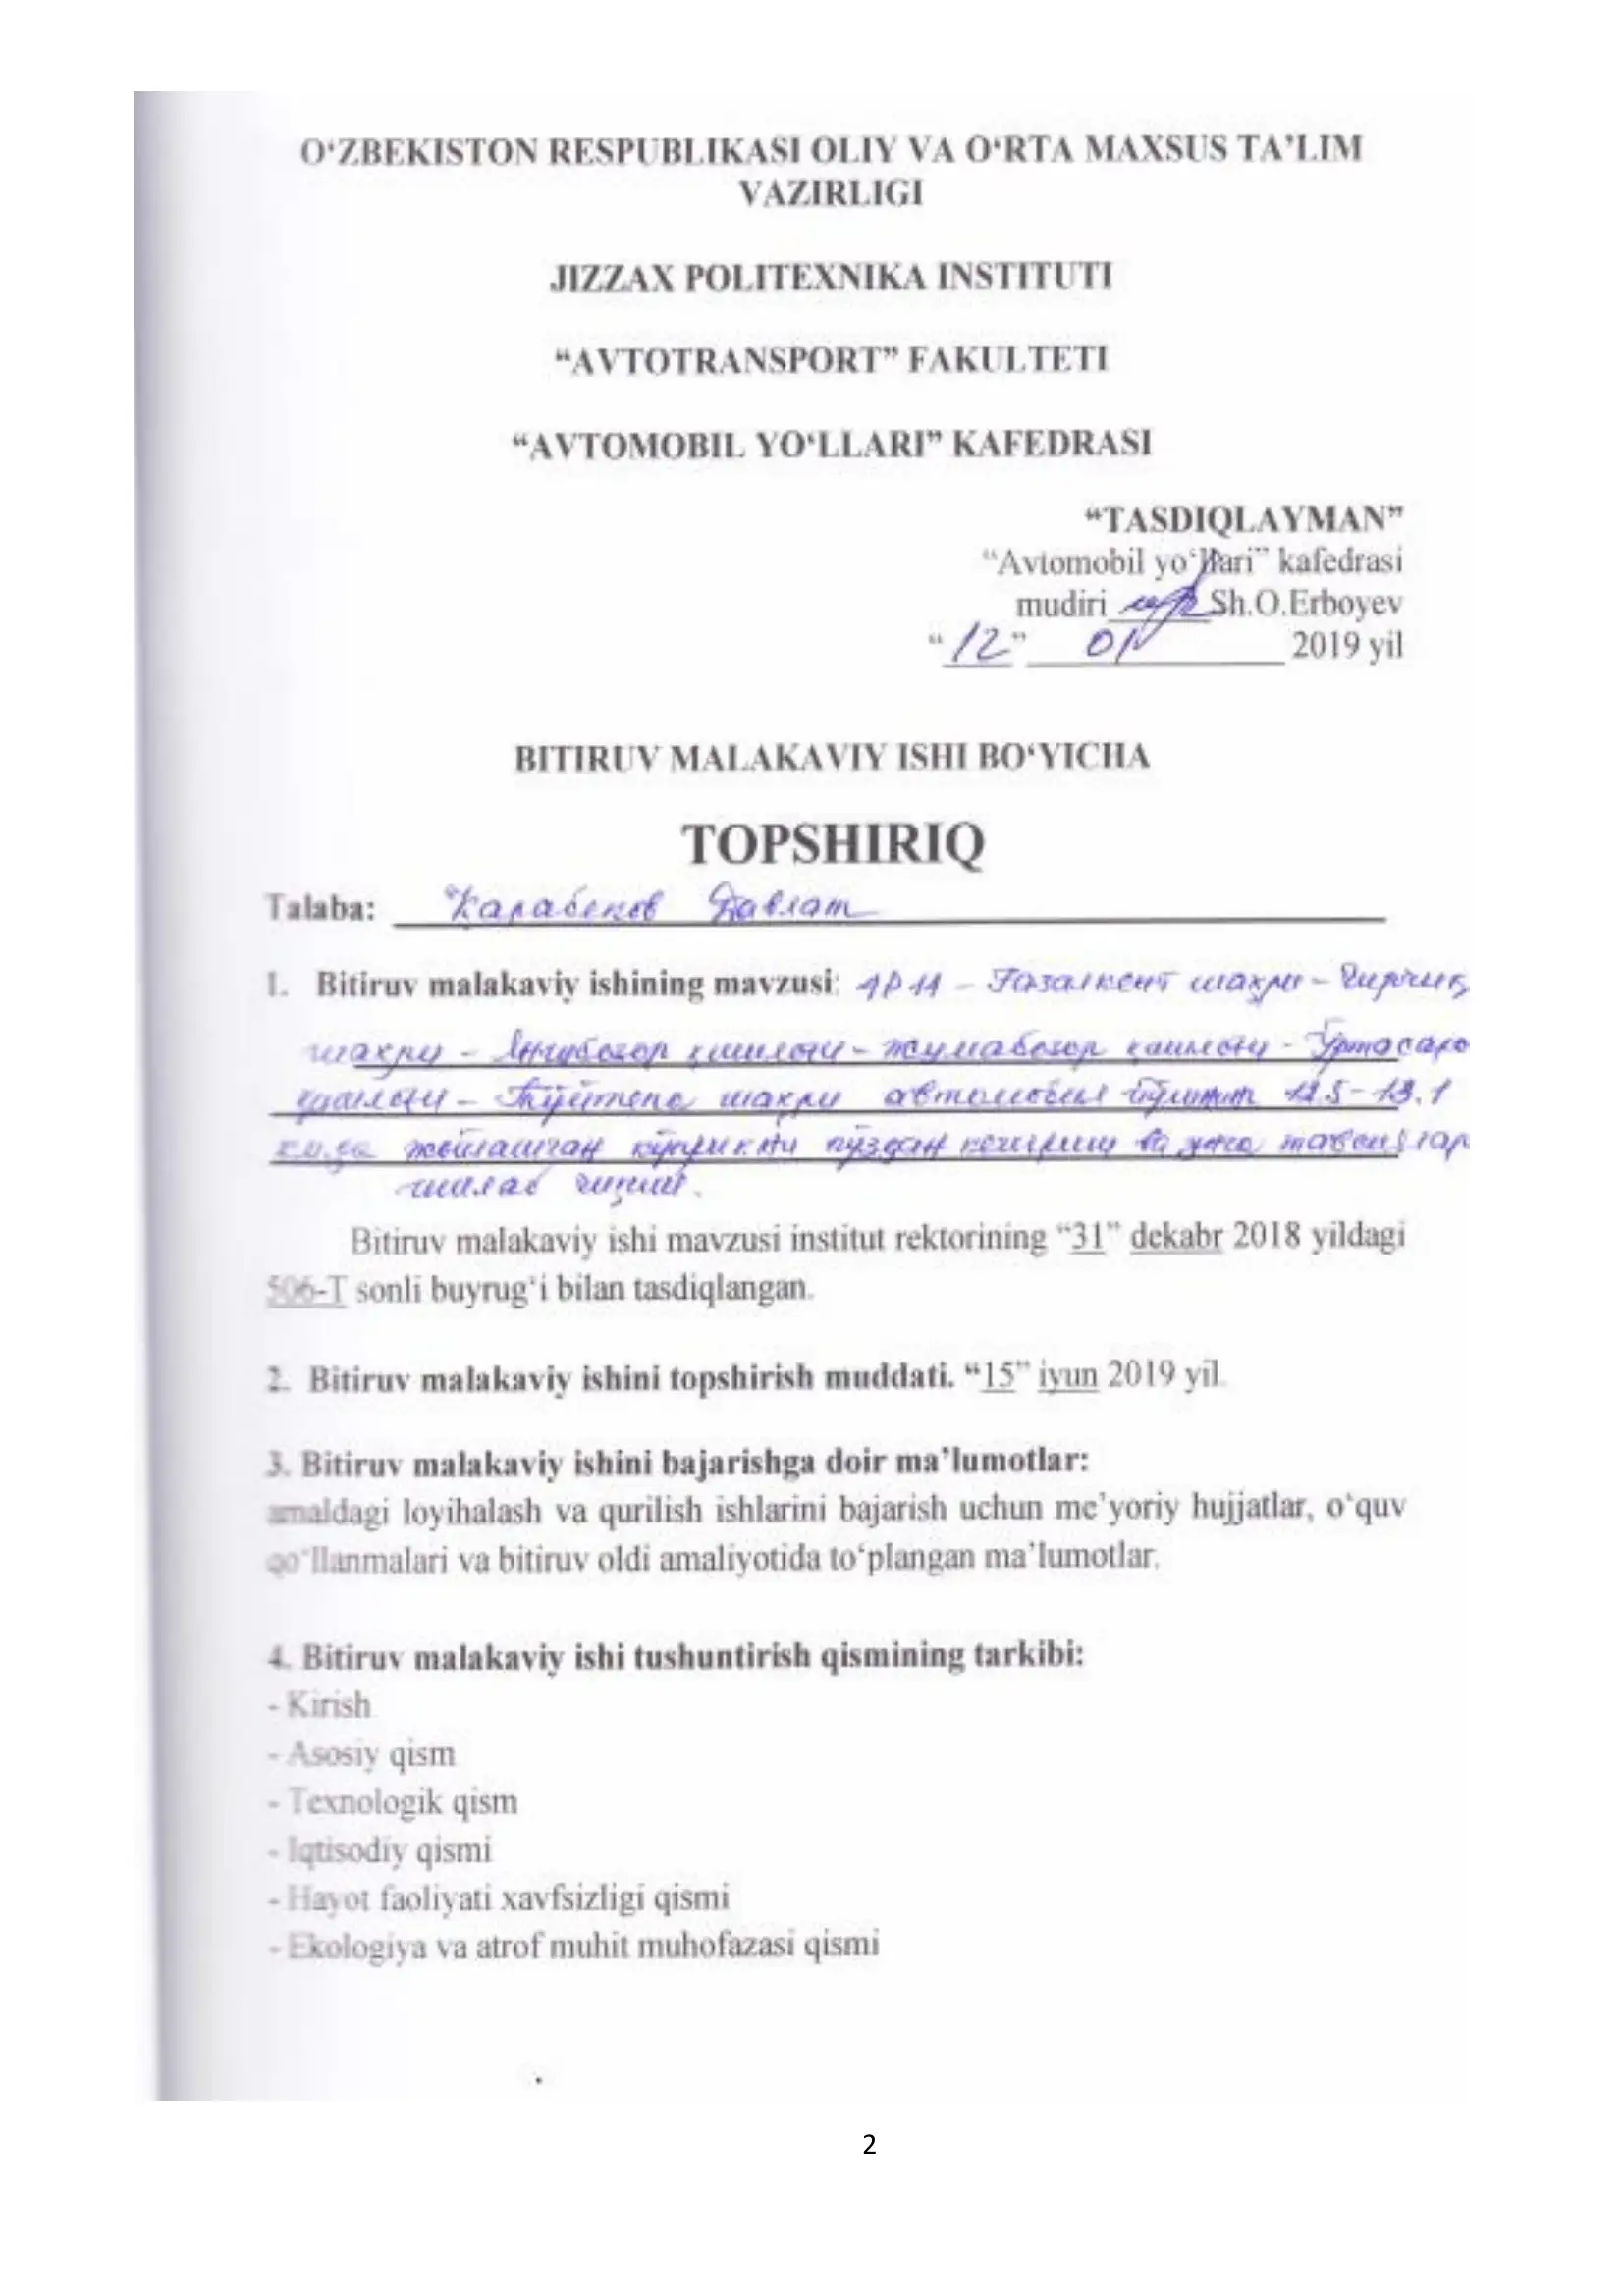 O‘ZBEKISTON RESPUBLIKASI OLIY VA O‘RTA MAXSUS TA’LIM
VAZIRLIGI
JIZZAX POLITEXNIKA INSTITUTI
“AVTOTRANSPORT” FAKULTETI
“AVTOMOBIL YO‘LLARI” KAFEDRASI
“TASDIQLAYMAN”
“Avtomobil yo‘llari” kafedrasi
mudiri Sh.O.Erboyev
“12” 01 2019 yil
BITIRUV MALAKAVIY ISHI BO‘YICHA
TOPSHIRIQ
Talaba: Қарабеков Давлат
1. Bitiruv malakaviy ishining mavzusi: 4Р14 – Ғазалкент шаҳри – Чирчиқ
шаҳри – Янгибозор қишлоғи – Жумабозор қишлоғи – Ўртасаро
қишлоғи – Тўйтепа шаҳри автомобил йўлининг 12.5–13.1
км.да жойлашган кўприкни кўздан кечириш ва унга тавсиялар
ишлаб чиқиш.
Bitiruv malakaviy ishi mavzusi institut rektorining “31” dekabr 2018 yildagi
506-T sonli buyrug‘i bilan tasdiqlangan.
2. Bitiruv malakaviy ishini topshirish muddati. “15” iyun 2019 yil.
3. Bitiruv malakaviy ishini bajarishga doir ma’lumotlar:
amaldagi loyihalash va qurilish ishlarini bajarish uchun me’yoriy hujjatlar, o‘quv
qo‘llanmalari va bitiruv oldi amaliyotida to‘plangan ma’lumotlar.
4. Bitiruv malakaviy ishi tushuntirish qismining tarkibi:
- Kirish
- Asosiy qism
- Texnologik qism
- Iqtisodiy qismi
- Hayot faoliyati xavfsizligi qismi
- Ekologiya va atrof muhit muhofazasi qismi
2